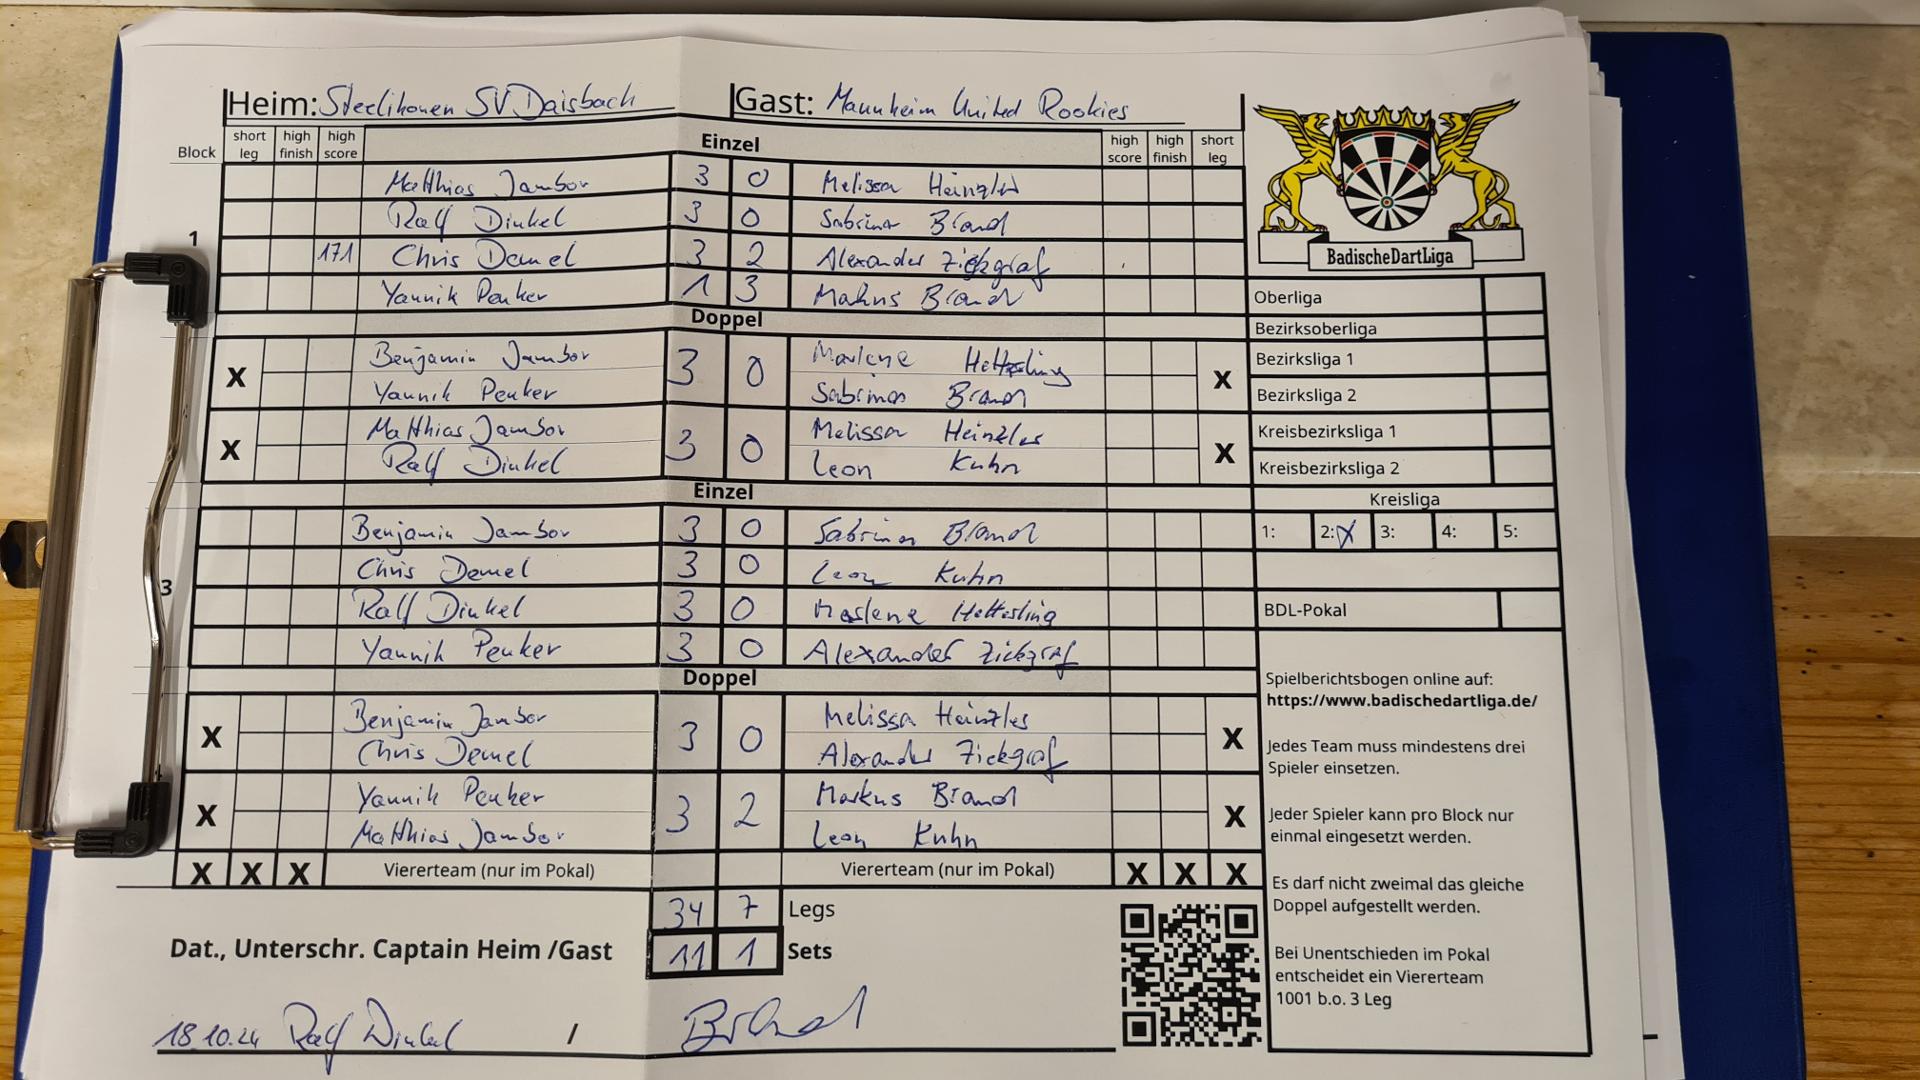 Heim: Steelikonen SV Daisbach Gast: Mannheim United Rookies
Block short leg high finish high score Einzel high score high finish short leg
Matthias Jambor 3 0 Melissa Heinzler
Ralf Dinkel 3 0 Sabrina Brand
1 171 Chris Demel 3 2 Alexander Zickgraf
Yannik Penker 1 3 Markus Brand
Doppel
X Benjamin Jambor 3 0 Marlene Hetterling X
Yannik Penker Sabrina Brand
X Matthias Jambor 3 0 Melissa Heinzler X
Ralf Dinkel Leon Kuhn
Einzel
Benjamin Jambor 3 0 Sabrina Brand
Chris Demel 3 0 Leon Kuhn
3 Ralf Dinkel 3 0 Marlene Hetterling
Yannik Penker 3 0 Alexander Zickgraf
Doppel
X Benjamin Jambor 3 0 Melissa Heinzler X
Chris Demel Alexander Zickgraf
X Yannik Penker 3 2 Markus Brand X
Matthias Jambor Leon Kuhn
X X X Viererteam (nur im Pokal) Viererteam (nur im Pokal) X X X
34 7 Legs
Dat., Unterschr. Captain Heim /Gast 11 1 Sets
18.10.24 Ralf Dinkel / Brand
BadischeDartLiga
Oberliga
Bezirksoberliga
Bezirksliga 1
Bezirksliga 2
Kreisbezirksliga 1
Kreisbezirksliga 2
Kreisliga
1: 2: X 3: 4: 5:
BDL-Pokal
Spielberichtsbogen online auf:
https://www.badischedartliga.de/
Jedes Team muss mindestens drei
Spieler einsetzen.
Jeder Spieler kann pro Block nur
einmal eingesetzt werden.
Es darf nicht zweimal das gleiche
Doppel aufgestellt werden.
Bei Unentschieden im Pokal
entscheidet ein Viererteam
1001 b.o. 3 Leg